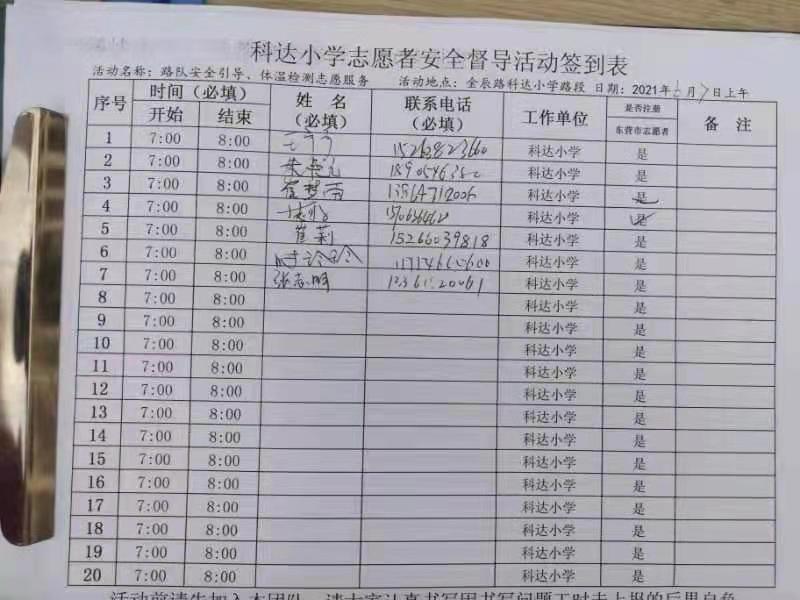 科达小学志愿者安全督导活动签到表
活动名称：路队安全引导、体温检测志愿服务 活动地点：金辰路科达小学路段 日期：2021年6月7日上午
序号 时间（必填） 姓 名（必填） 联系电话（必填） 工作单位 是否注册东营市志愿者 备 注
开始 结束
1 7:00 8:00 科达小学 是
2 7:00 8:00 科达小学 是
3 7:00 8:00 崔梦雨 13864712006 科达小学 是
4 7:00 8:00 科达小学 是
5 7:00 8:00 崔莉 15266039818 科达小学 是
6 7:00 8:00 科达小学 是
7 7:00 8:00 张志明 科达小学 是
8 7:00 8:00 科达小学 是
9 7:00 8:00 科达小学 是
10 7:00 8:00 科达小学 是
11 7:00 8:00 科达小学 是
12 7:00 8:00 科达小学 是
13 7:00 8:00 科达小学 是
14 7:00 8:00 科达小学 是
15 7:00 8:00 科达小学 是
16 7:00 8:00 科达小学 是
17 7:00 8:00 科达小学 是
18 7:00 8:00 科达小学 是
19 7:00 8:00 科达小学 是
20 7:00 8:00 科达小学 是
活动前请先加入本团队，请大家认真书写因书写问题工时未上报的后果自负